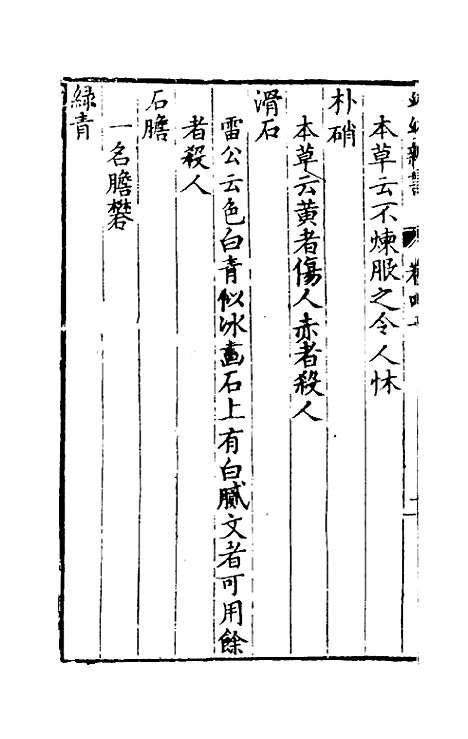 本草云不煉服之令人怵
朴硝
本草云黄者傷人赤者殺人
滑石
雷公云色白青似冰畫石上有白膩文者可用餘
者殺人
石膽
一名膽礬
綠青